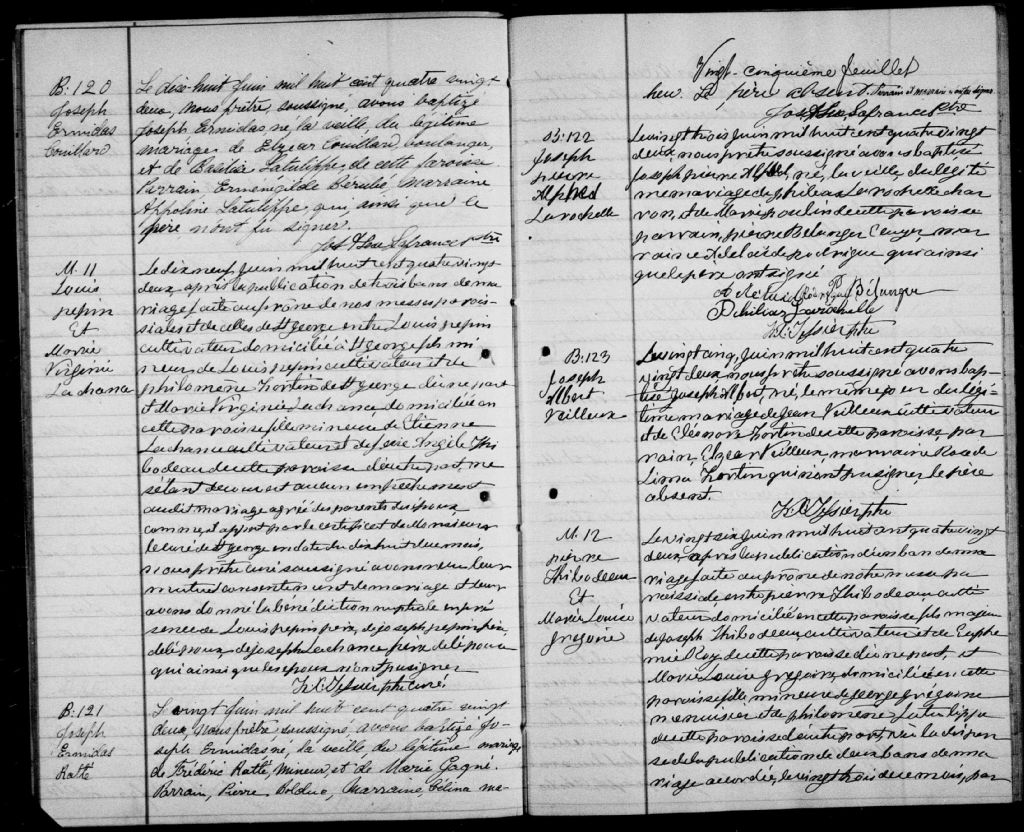 B. 120
Joseph
Ermidas
Couillard
Le dix-huit Juin mil huit cent quatre vingt
deux, nous prêtre soussigné, avons baptizé
Joseph Ermidas, né, la veille du légitime
mariage de Elzear Couillard, boulanger,
et de Basilise Latulippe, de cette paroisse
Parrain Ermenegilde Bérubé, Marraine
Appoline Latulippe, qui, ainsi que le
père n'ont su signer.
Jos Lafrance ptre
M. 11
Louis
pepin
Et
Marie
Virginie
Lachance
Le dix neuf Juin mil huit cent quatre vingt
deux après la publication de trois bans de ma
riage faite au prône de nos messes parois-
siales et de celles de St george entre Louis pepin
cultivateur domicilié à St george fils mi
neur de Louis pepin cultivateur et de
philomene Fortin de St george d'une part
et Marie Virginie Lachance domiciliée en
cette paroisse fille mineure de Etienne
Lachance cultivateur et de feue Angèle Thi
bodeau de cette paroisse d'autre part, ne
s'étant decouvert aucun empêchement
au dit mariage agréé des parents des époux
comme il appert par le certificat de Monsieur
le curé de St george en date du dix huit du mois,
nous prêtre curé soussigné avons reçu leur
mutuel consentement de mariage et leur
avons donné la bénédiction nuptiale en pré
sence de Louis pepin père, de joseph pepin frère,
de l'époux de joseph Lachance père de l'épouse
qui ainsi que les époux n'ont pu signer
ptre curé
B. 121
Joseph
Ermidas
Ratté
Le vingt Juin mil huit cent quatre vingt
deux, nous prêtre, soussigné, avons baptizé Jo-
seph Ermidas né, la veille du légitime mariage
de Frédéric Ratté, Mineur, et de Marie Gagné.
Parrain, Pierre Bolduc, Marraine, Célina ma-
Vingt-cinquième feuillet
heu. Le père absent. Parrain et marraine
Jos Lafrance Ptre
B. 122
Joseph
pierre
Alphred
Larochelle
Le vingt trois Juin mil huit cent quatre vingt
deux nous prêtre soussigné avons baptisé
Joseph pierre Alfred, né, la veille, du légiti
me mariage de philias Larochelle char
ron, et de Marie poulin de cette paroisse
parrain, pierre Belanger, mar
raine Adelaide rodrigue qui ainsi
que le père ont signé
Bélanger
Philias Larochelle
ptre
B. 123
Joseph
Albert
Veilleux
Le vingt cinq, Juin mil huit cent quatre
vingt deux nous prêtre soussigné avons bap-
tisé Joseph Albert, né, le même jour du légi-
time mariage de Jean Veilleux cultivateur
et de Eléonore Fortin de cette paroisse, par
rain, Elzear Veilleux, marraine Rose de
Lima Fortin qui n'ont pu signer, le père
absent
ptre
M. 12
pierre
Thibodeau
Et
Marie Louise
gregoire
Le vingt six Juin mil huit cent quatre vingt
deux, après la publication d'un ban de ma
riage faite au prône de notre messe pa
roissiale entre pierre Thibodeau culti
vateur domicilié en cette paroisse fils majeur
de Joseph Thibodeau cultivateur et de Euphe
mie Roy de cette paroisse d'une part, et
Marie Louise gregoire, domiciliée en cette
paroisse fille mineure de george grégoire
menuisier et de philomène Latulippe
de cette paroisse d'autre part, vu la dispen
se de la publication de deux bans de ma
riage accordée, le vingt trois de ce mois, par